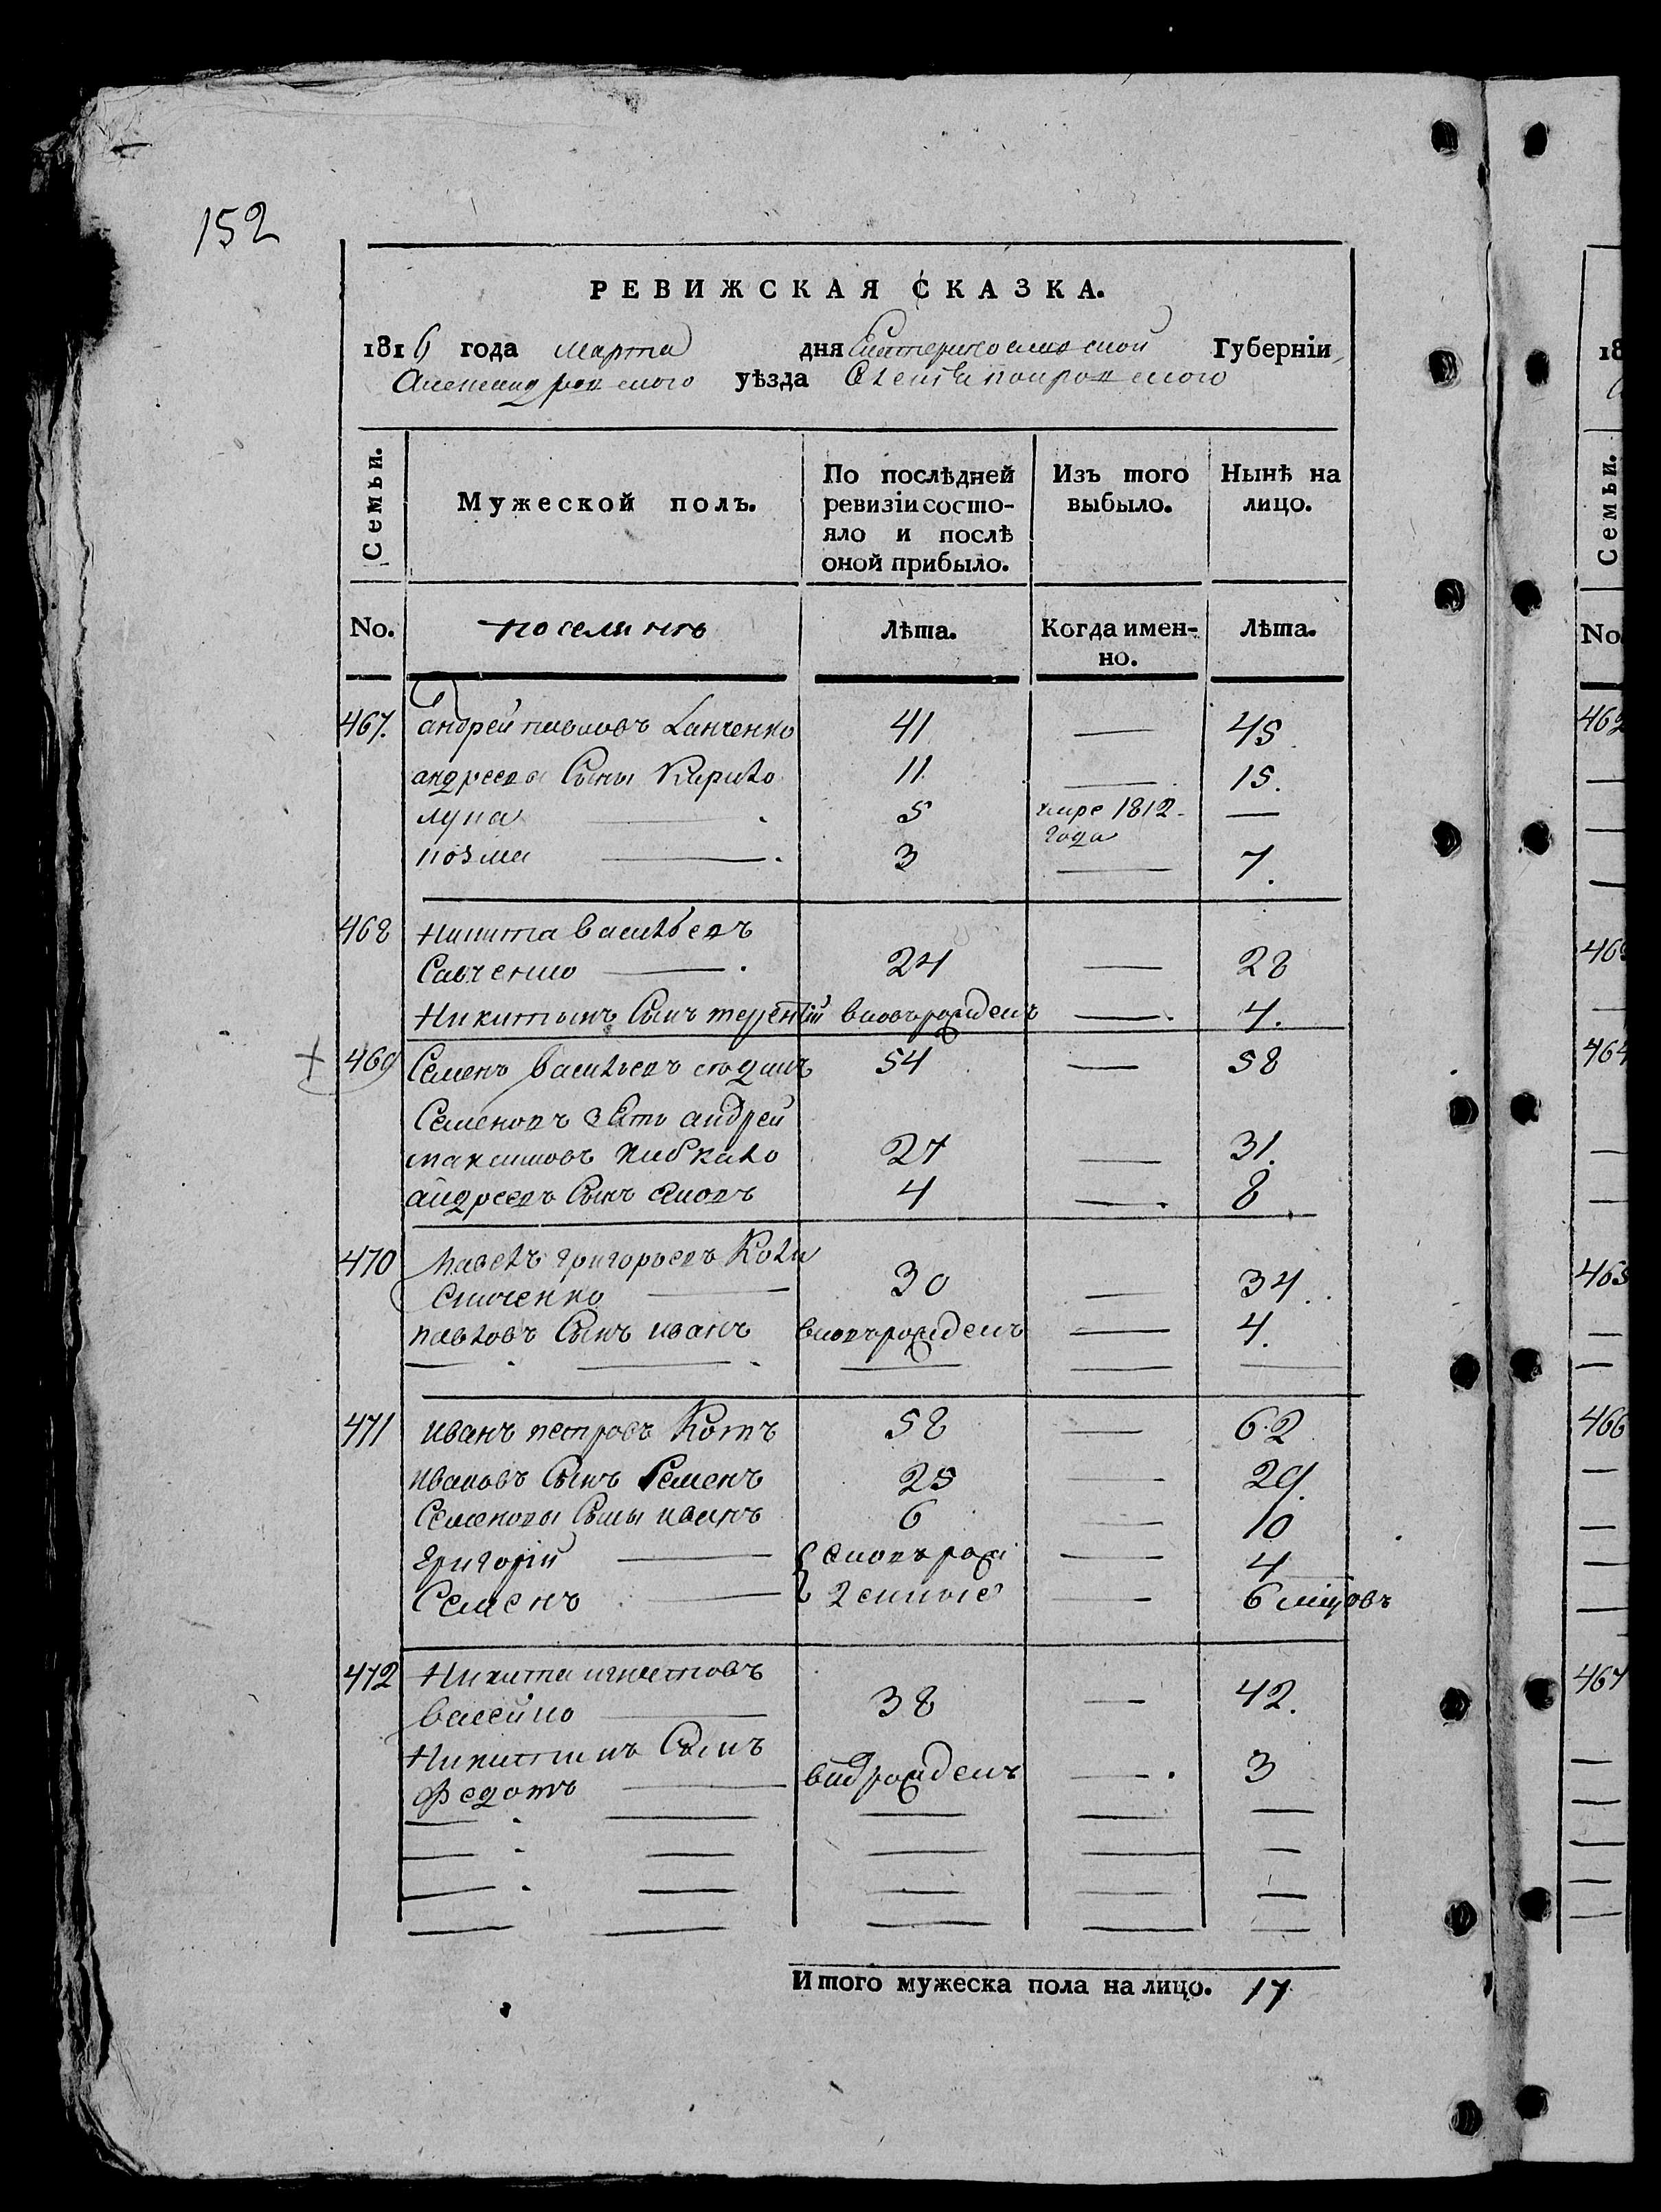 152
РЕВИЖСКАЯ СКАЗКА.
1816 года марта дня Екатеринославской Губерніи
Александровского уѣзда
Семьи. Мужеской полъ. По послѣдней ревизіи состояло и послѣ оной прибыло. Изъ того выбыло. Нынѣ на лицо.
No. поселянъ Лѣта. Когда именно. Лѣта.
467. андрей павловъ Ланченко 41 — 45.
андреевы Сыны Кирило 11 — 15.
лука — 5 умре 1812 — года
козма — 3 — 7.
468 никита васильевъ
Савченко — 24 — 28
Никитинъ Сынъ терентій вновьрожденъ — 4.
469 Семенъ васильевъ 54 — 58
Семеновъ зять андрей
максимовъ 27 — 31.
андреевъ Сынъ 4 — 8
470 павелъ григорьевъ Коли
сниченко — 30 — 34.
павловъ Сынъ иванъ вновърожденъ — 4.
471 иванъ петровъ Котъ 58 — 62
ивановъ Сынъ Семенъ 25 — 29.
Семеновы Сыны иванъ 6 — 10
григорій — вновъ рож — 4
Семенъ — денные — 6 мцовъ
472 Никита игнатовъ
38 — 42.
Никитинъ Сынъ
федотъ — рожденъ — 3
Итого мужеска пола на лицо. 17
18
Семьи.
No
462
463
464
465
466
467